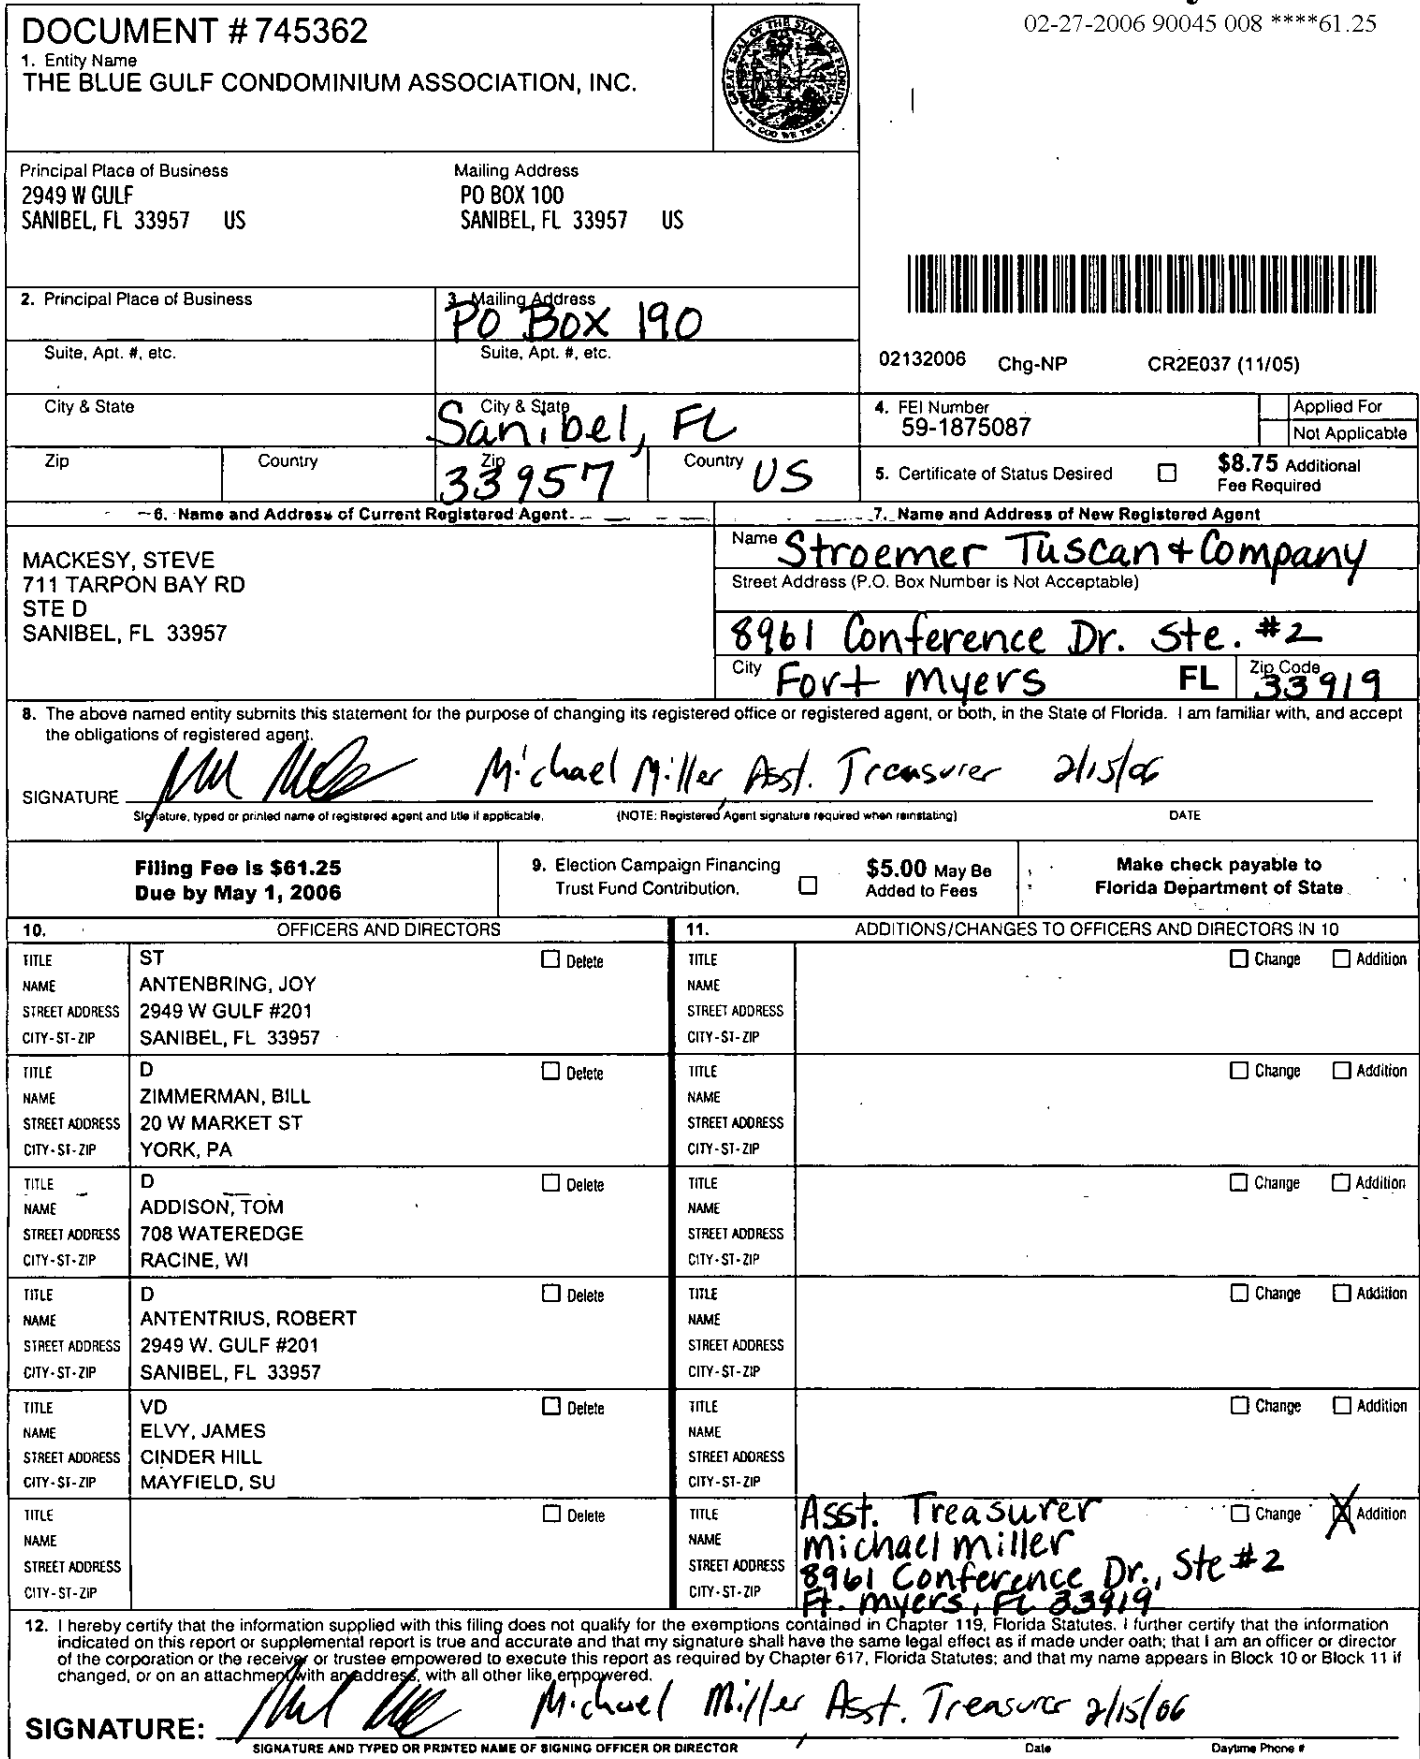 02-27-2006 90045 008 ****61.25
DOCUMENT # 745362
1. Entity Name
THE BLUE GULF CONDOMINIUM ASSOCIATION, INC.
GREAT SEAL OF THE STATE OF FLORIDA
IN GOD WE TRUST
Principal Place of Business
2949 W GULF
SANIBEL, FL 33957 US
Mailing Address
PO BOX 100
SANIBEL, FL 33957 US
2. Principal Place of Business
3. Mailing Address
PO Box 190
Suite, Apt. #, etc.
Suite, Apt. #, etc.
02132006 Chg-NP CR2E037 (11/05)
City & State
City & State
Sanibel, FL
4. FEI Number
59-1875087
Applied For
Not Applicable
Zip
Country
Zip
33957
Country
US
5. Certificate of Status Desired
$8.75 Additional
Fee Required
6. Name and Address of Current Registered Agent
7. Name and Address of New Registered Agent
MACKESY, STEVE
711 TARPON BAY RD
STE D
SANIBEL, FL 33957
Name Stroemer Tuscan + Company
Street Address (P.O. Box Number is Not Acceptable)
8961 Conference Dr. Ste. #2
City Fort Myers FL Zip Code 33919
8. The above named entity submits this statement for the purpose of changing its registered office or registered agent, or both, in the State of Florida. I am familiar with, and accept
the obligations of registered agent.
SIGNATURE Michael Miller, Asst. Treasurer 2/15/06
Signature, typed or printed name of registered agent and title if applicable. (NOTE: Registered Agent signature required when reinstating) DATE
Filing Fee is $61.25
Due by May 1, 2006
9. Election Campaign Financing
Trust Fund Contribution.
$5.00 May Be
Added to Fees
Make check payable to
Florida Department of State
10. OFFICERS AND DIRECTORS
11. ADDITIONS/CHANGES TO OFFICERS AND DIRECTORS IN 10
TITLE ST Delete
NAME ANTENBRING, JOY
STREET ADDRESS 2949 W GULF #201
CITY-ST-ZIP SANIBEL, FL 33957
TITLE Change Addition
NAME
STREET ADDRESS
CITY-ST-ZIP
TITLE D Delete
NAME ZIMMERMAN, BILL
STREET ADDRESS 20 W MARKET ST
CITY-ST-ZIP YORK, PA
TITLE Change Addition
NAME
STREET ADDRESS
CITY-ST-ZIP
TITLE D Delete
NAME ADDISON, TOM
STREET ADDRESS 708 WATEREDGE
CITY-ST-ZIP RACINE, WI
TITLE Change Addition
NAME
STREET ADDRESS
CITY-ST-ZIP
TITLE D Delete
NAME ANTENTRIUS, ROBERT
STREET ADDRESS 2949 W. GULF #201
CITY-ST-ZIP SANIBEL, FL 33957
TITLE Change Addition
NAME
STREET ADDRESS
CITY-ST-ZIP
TITLE VD Delete
NAME ELVY, JAMES
STREET ADDRESS CINDER HILL
CITY-ST-ZIP MAYFIELD, SU
TITLE Change Addition
NAME
STREET ADDRESS
CITY-ST-ZIP
TITLE Delete
NAME
STREET ADDRESS
CITY-ST-ZIP
TITLE Asst. Treasurer Change X Addition
NAME Michael Miller
STREET ADDRESS 8961 Conference Dr., Ste #2
CITY-ST-ZIP Ft. Myers, FL 33919
12. I hereby certify that the information supplied with this filing does not qualify for the exemptions contained in Chapter 119, Florida Statutes. I further certify that the information
indicated on this report or supplemental report is true and accurate and that my signature shall have the same legal effect as if made under oath; that I am an officer or director
of the corporation or the receiver or trustee empowered to execute this report as required by Chapter 617, Florida Statutes; and that my name appears in Block 10 or Block 11 if
changed, or on an attachment with an address, with all other like empowered.
SIGNATURE: Michael Miller Asst. Treasurer 2/15/06
SIGNATURE AND TYPED OR PRINTED NAME OF SIGNING OFFICER OR DIRECTOR Date Daytime Phone #